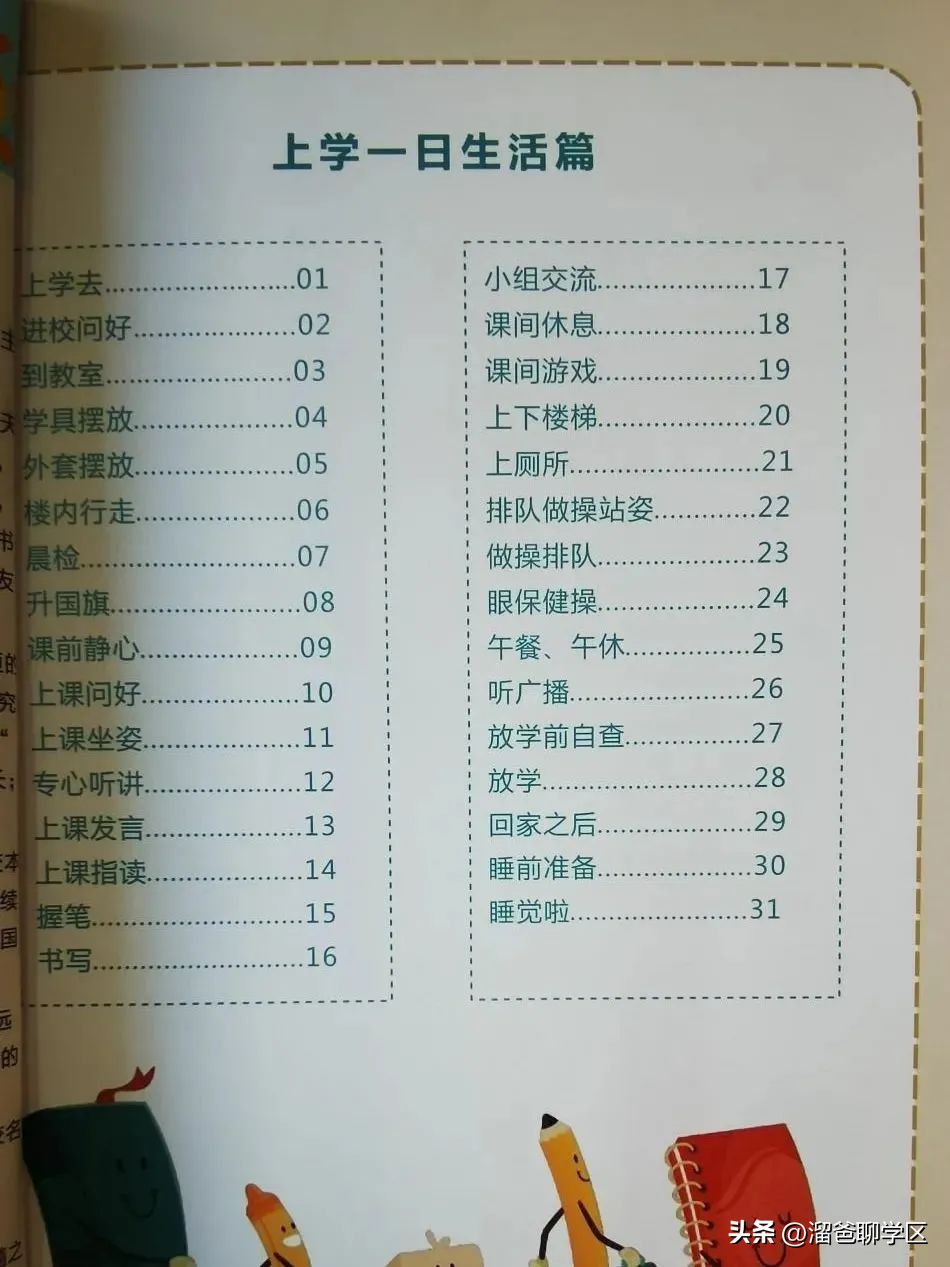 上学一日生活篇
上学去........................01
进校问好.....................02
到教室........................03
学具摆放....................04
外套摆放....................05
楼内行走....................06
晨检...........................07
升国旗........................08
课前静心....................09
上课问好....................10
上课坐姿....................11
专心听讲....................12
上课发言....................13
上课指读....................14
握笔...........................15
书写...........................16
小组交流....................17
课间休息....................18
课间游戏....................19
上下楼梯....................20
上厕所........................21
排队做操站姿.............22
做操排队....................23
眼保健操....................24
午餐、午休................25
听广播.......................26
放学前自查................27
放学...........................28
回家之后....................29
睡前准备....................30
睡觉啦.......................31
头条 @溜爸聊学区